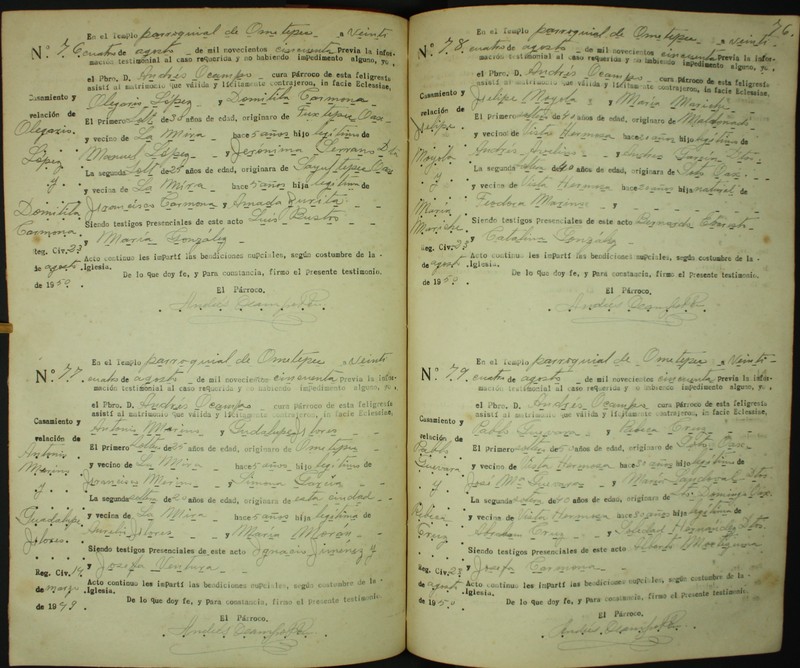 En el Templo parroquial de Ometepec a Veinti
Nº 76 cuatro de agosto de mil novecientos cincuenta Previa la infor-
mación testimonial al caso requerida y no habiendo impedimento alguno, yo,
el Pbro. D. Andrés Ocampo cura Párroco de esta feligresía
asistí al matrimonio que válida y lícitamente contrajeron, in facie Ecclesiae,
Casamiento y
Olegario López y Domitila Carmona
relación de
El Primero Solt. de años de edad, originario de Tuxtepec Oax.
Olegario
y vecino de La Mira hace 5 años hijo legítimo de
López
Manuel López y Jeronima Serrano
y
La segunda Solt. de años de edad, originara de
y vecina de La Mira hace 5 años hija legítima de
Domitila
Francisco Carmona y Amada Zurita
Carmona
Siendo testigos Presenciales de este acto Luis Bustos
y María González
Reg. Civ. 23
Acto continuo les impartí las bendiciones nupciales, según costumbre de la
de agosto
Iglesia.
De lo que doy fe, y Para constancia, firmo el Presente testimonio.
de 1950
El Párroco,
Andrés Ocampo
En el Templo parroquial de Ometepec a Veinti
Nº 77 cuatro de agosto de mil novecientos cincuenta Previa la infor-
mación testimonial al caso requerida y no habiendo impedimento alguno, yo,
el Pbro. D. Andrés Ocampo cura Párroco de esta feligresía
asistí al matrimonio que válida y lícitamente contrajeron, in facie Ecclesiae,
Casamiento y
Antonio Marino y Guadalupe Flores
relación de
El Primero de años de edad, originario de Ometepec
Antonio
y vecino de La Mira hace 5 años hijo legítimo de
Marino
Francisco Marino y Simona García
y
La segunda de años de edad, originara de esta ciudad
Guadalupe
y vecina de La Mira hace 5 años hija legítima de
Flores
Aurelio Flores y María Morán
Siendo testigos Presenciales de este acto Ignacio Jiménez y
y Josefa Ventura
Reg. Civ. 14
Acto continuo les impartí las bendiciones nupciales, según costumbre de la
de marzo
Iglesia.
De lo que doy fe, y Para constancia, firmo el Presente testimonio.
de 1949
El Párroco,
Andrés Ocampo
76.
En el Templo parroquial de Ometepec a Veinti
Nº 78 cuatro de agosto de mil novecientos cincuenta Previa la infor-
mación testimonial al caso requerida y no habiendo impedimento alguno, yo,
el Pbro. D. Andrés Ocampo cura Párroco de esta feligresía
asistí al matrimonio que válida y lícitamente contrajeron, in facie Ecclesiae,
Casamiento y
Felipe y María
relación de
El Primero soltero de años de edad, originario de Maldonado
Felipe
y vecino de Vista Hermosa hace años hijo legítimo de
Andrés y Andrea García
y
La segunda de años de edad, originara de Oax.
y vecina de Vista Hermosa hace años hija natural de
María
Teodora y
Siendo testigos Presenciales de este acto Bernarda
y Catalina González
Reg. Civ. 23
Acto continuo les impartí las bendiciones nupciales, según costumbre de la
de agosto
Iglesia.
De lo que doy fe, y Para constancia, firmo el Presente testimonio.
de 1950
El Párroco,
Andrés Ocampo
En el Templo parroquial de Ometepec a Veinti
Nº 79 cuatro de agosto de mil novecientos cincuenta Previa la infor-
mación testimonial al caso requerida y no habiendo impedimento alguno, yo,
el Pbro. D. Andrés Ocampo cura Párroco de esta feligresía
asistí al matrimonio que válida y lícitamente contrajeron, in facie Ecclesiae,
Casamiento y
Pablo Guevara y Cruz
relación de
El Primero soltero de años de edad, originario de Oax.
Pablo
y vecino de Vista Hermosa hace años hijo legítimo de
Guevara
José Mª Guevara y María Sandoval
y
La segunda de 40 años de edad, originara de Sto. Domingo Oax.
y vecina de Vista Hermosa hace años hija legítima de
Cruz
Abraham Cruz y Soledad Hernández
Siendo testigos Presenciales de este acto
y Josefa Carmona
Reg. Civ. 23
Acto continuo les impartí las bendiciones nupciales, según costumbre de la
de agosto
Iglesia.
De lo que doy fe, y Para constancia, firmo el Presente testimonio.
de 1950
El Párroco,
Andrés Ocampo